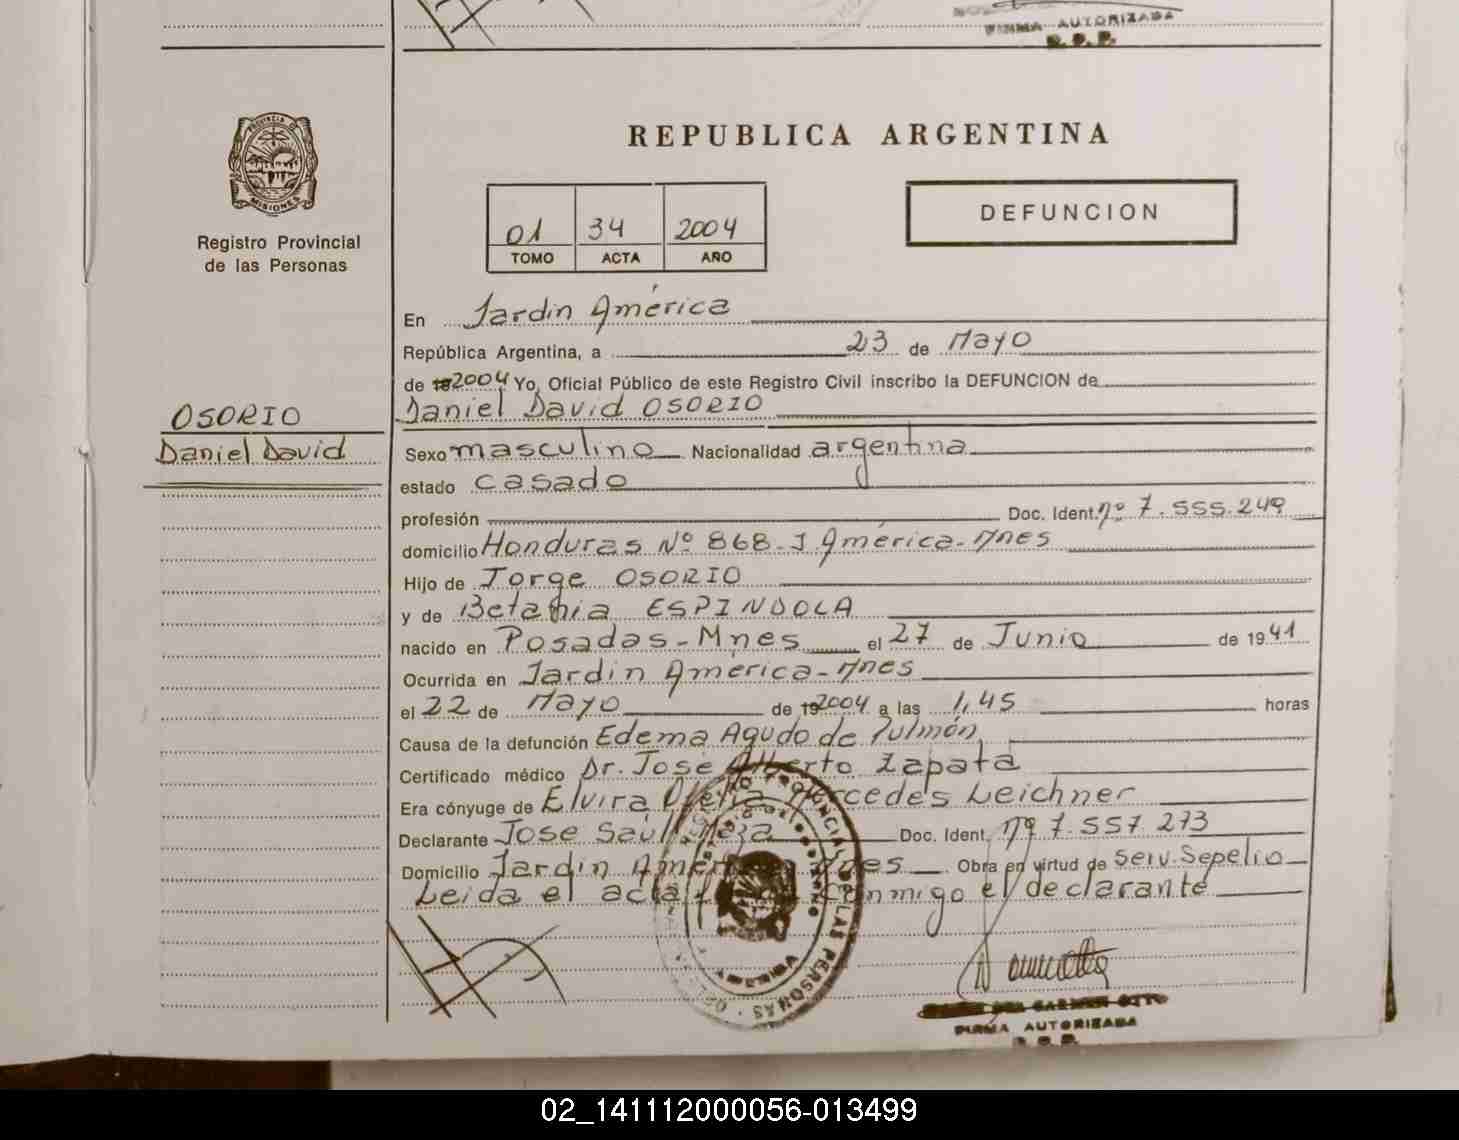 FIRMA AUTORIZADA
R. P. P.
PROVINCIA DE
MISIONES
Registro Provincial
de las Personas
REPUBLICA ARGENTINA
01 34 2004
TOMO ACTA AÑO
DEFUNCION
En Jardín América
República Argentina, a 23 de Mayo
de 2004 Yo, Oficial Público de este Registro Civil inscribo la DEFUNCION de
OSORIO
Daniel David
Daniel David OSORIO
Sexo masculino Nacionalidad argentina
estado casado
profesión Doc. Ident. nº 7.555.249
domicilio Honduras Nº 868-J.América-Mnes
Hijo de Jorge OSORIO
y de Betania ESPINDOLA
nacido en Posadas-Mnes el 27 de Junio de 1941
Ocurrida en Jardín América-Mnes
el 22 de Mayo de 2004 a las 1,45 horas
Causa de la defunción Edema Agudo de Pulmón
Certificado médico Dr. José Alberto Zapata
Era cónyuge de Elvira Mercedes Leichner
Declarante Jose Saúl Doc. Ident. nº 7.557.273
Domicilio Jardín América Mnes Obra en virtud de Serv.Sepelio
Leida el acta conmigo el declarante
REGISTRO PROVINCIAL DE LAS PERSONAS
FIRMA AUTORIZADA
R. P. P.
02_141112000056-013499